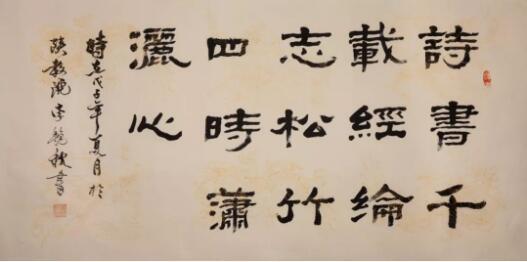 詩書千
載經綸
志松竹
四時瀟
灑心
時在戊子年夏月於
陝教院李書